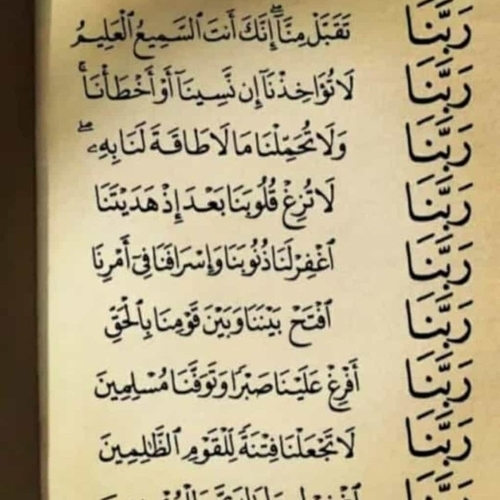 رَبَّنَا تَقَبَّلْ مِنَّآ ۖ إِنَّكَ أَنتَ ٱلسَّمِيعُ ٱلْعَلِيمُ
رَبَّنَا لَا تُؤَاخِذْنَآ إِن نَّسِينَآ أَوْ أَخْطَأْنَا ۚ
رَبَّنَا وَلَا تُحَمِّلْنَا مَا لَا طَاقَةَ لَنَا بِهِۦ ۖ
رَبَّنَا لَا تُزِغْ قُلُوبَنَا بَعْدَ إِذْ هَدَيْتَنَا
رَبَّنَا ٱغْفِرْ لَنَا ذُنُوبَنَا وَإِسْرَافَنَا فِىٓ أَمْرِنَا
رَبَّنَا ٱفْتَحْ بَيْنَنَا وَبَيْنَ قَوْمِنَا بِٱلْحَقِّ
رَبَّنَا أَفْرِغْ عَلَيْنَا صَبْرًا وَتَوَفَّنَا مُسْلِمِينَ
رَبَّنَا لَا تَجْعَلْنَا فِتْنَةً لِّلْقَوْمِ ٱلظَّٰلِمِينَ